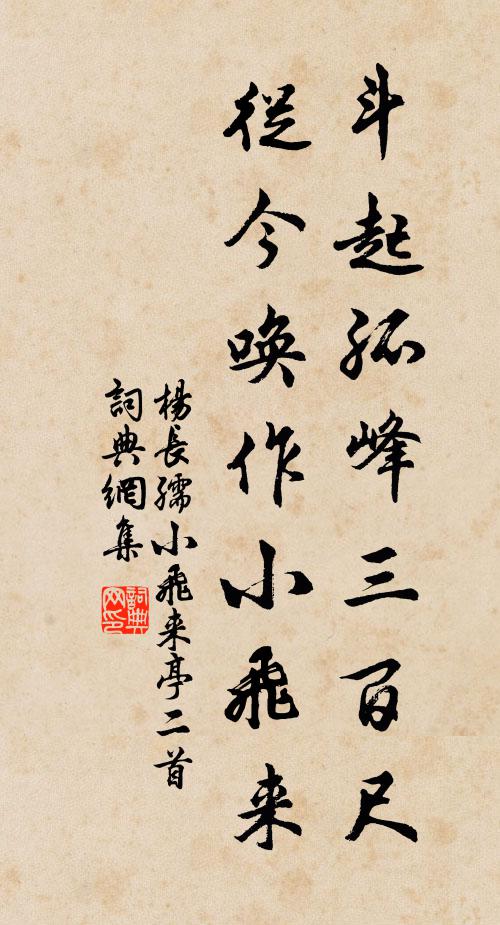 斗起孤峰三百尺
從今喚作小飛来
楊長孺小飛来亭二首
詞典網集
詞典网印